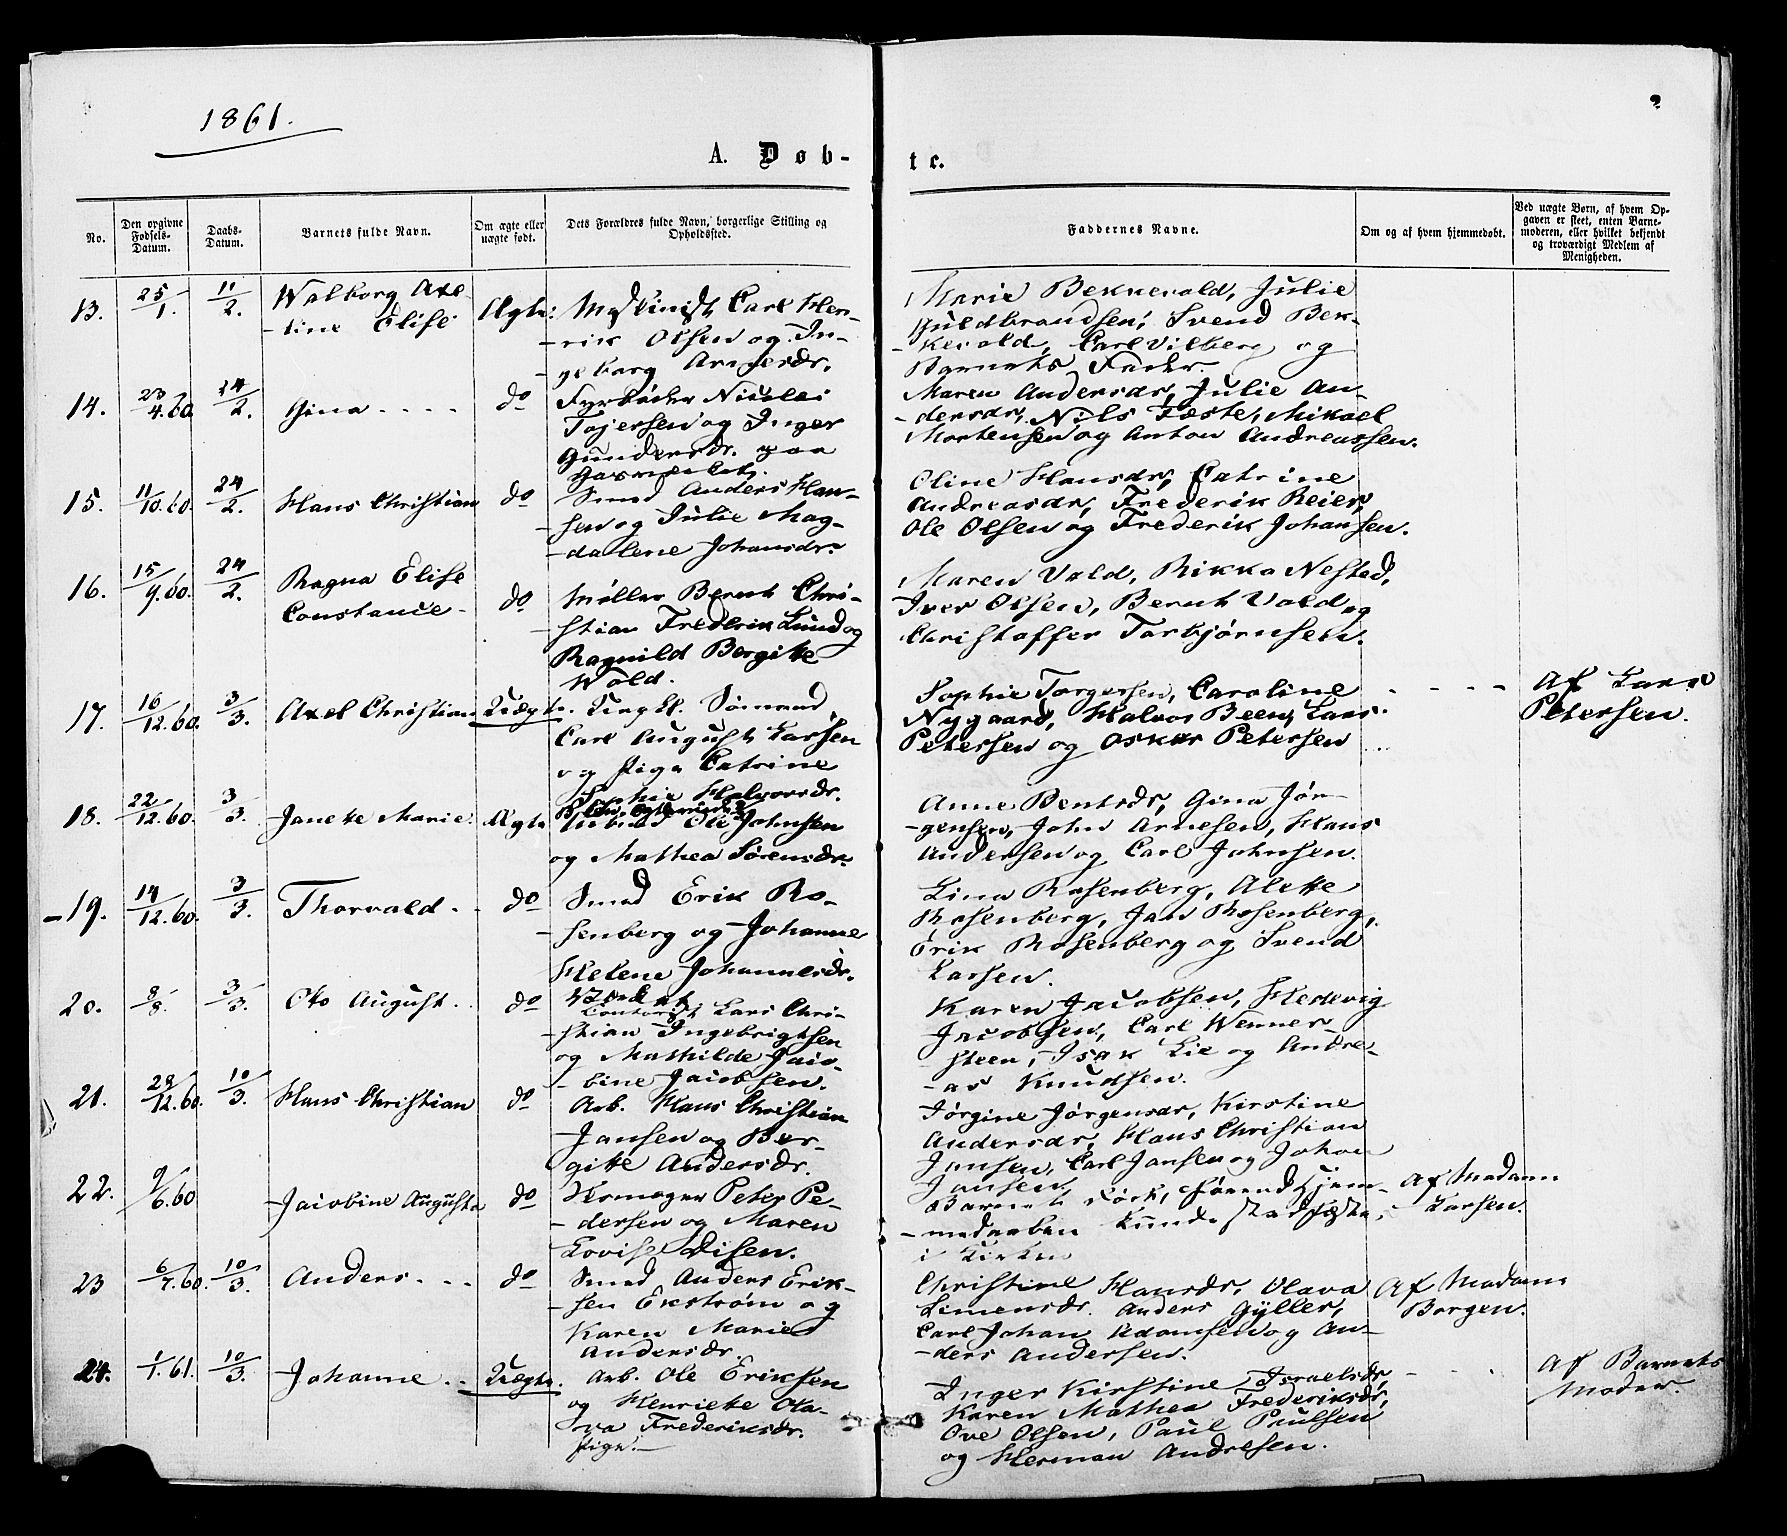 1861.
2
A. Døb-
te.
No.
Den opgivne Fødsels-Datum.
Daabs-Datum.
Barnets fulde Navn.
Om ægte eller uægte født.
Dets Forældres fulde Navn, borgerlige Stilling og Opholdssted.
Faddernes Navne.
Om og af hvem hjemmedøbt.
Ved uægte Børn, af hvem Opgaven er skeet, enten Barnemoderen, eller hvilket bekjendt og troværdigt Medlem af Menigheden.
13.
25/1.
11/2.
Walborg Axe-
-line Elise
Ægte:
Maskinist Carl Hen-
-rik Olsen og In-
geborg Arnesdr.
Marie Bekkevold, Julie
Huldbrandsen, Svend Bek-
-kevold, Carl Vilberg og
Barnets Fader.
14.
23/4.60.
24/2.
Gina
do
Fyrbøder Nicolai
Tojersen og Inger
Gundersdr. paa
Gasværket.
Maren Andersdr, Julie An-
-dersdr, Nils Fæste, Mikael
Mortensen og Anton Andreassen.
15.
11/10.60.
24/2.
Hans Christian
do
Smed Anders Han-
-sen og Julie Mag-
-dalene Johansdr.
Oline Hansdr, Catrine
Andreasdr, Frederik Reier,
Ole Olsen og Frederik Johansen.
16.
15/9.60.
24/2.
Ragna Elise
Constance
do
Møller Bernt Chri-
-stian Frederik Lund og
Ragnild Bergitte
Wold.
Maren Vold, Rikka Nested,
Iver Olsen, Bernt Vold og
Christoffer Torbjørnsen.
17.
16/12.60.
3/3.
Axel Christian
Uægte.
Ungk. Sømand
Carl August Larsen
og Pige Catrine
Sophie Halvorsdr.
Sophie Torgersen, Caroline
Nygaard, Halvor Been, Lars
Petersen og Oskar Petersen
Af Lars
Petersen.
18.
22/12.60.
3/3.
Janette Marie.
Ægte
Ole Johnsen
og Mathea Sørensdr.
Anne Bentsdr, Gina Jør-
-gensen, John Arnesen, Hans
Andersen og Carl Johnsen.
-19.
14/12.60.
3/3.
Thorvald
do
Smed Erik Ro-
-senberg og Johanne
Helene Johannesdr.
Lina Rosenberg, Alette
Rosenberg, Jan Rosenberg,
Erik Rosenberg og Svend
Larsen.
20.
8/8.
3/3.
Oto August
do
Contorist Lars Chri-
-stian Ingebrigtsen
og Mathilde Jaco-
-bine Jacobsen.
Karen Jacobsen, Hedevig
Jacobsen, Carl Wenner-
steen, Isak Lie og Andre-
-as Knudsen.
21.
29/12.60.
10/3.
Hans Christian
do
Arb. Hans Christian
Jansen og Ber-
gitte Andersdr.
Jørgine Jørgensdr, Kirstine
Andersdr, Hans Christian
Jansen, Carl Jansen og Johan
Jansen.
22.
9/6.60
Jacobine Augusta
do
Kræmger Peter Pe-
-dersen og Maren
Lovise Disen.
Barnet døde, førend Hjem-
-medaaben kunde stadfæstes
i Kirken
Af Madam
Larsen.
23
6/7.60.
10/3.
Anders
do
Smed Anders Erik-
-sen Ekstrøm og
Karen Marie
Andersdr.
Christine Hansdr, Olava
Simensdr. Anders Gyller,
Carl Johan Adamsen og An-
-ders Andersen.
Af Madam
Borgen.
24.
1/1.61.
10/3.
Johanne
Uægte.
Arb. Ole Eriksen
og Henriette Ola-
va Frederiksdr.
Pige.
Inger Kirstine Israelsdr,
Karen Mathea Frederiksdr,
Ove Olsen, Paul Paulsen
og Herman Andresen.
Af Barnets
Moder.